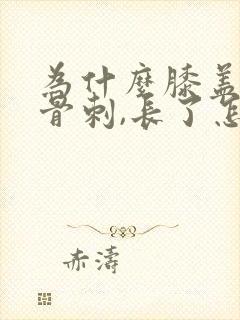 為什麼膝蓋
骨刺,長了怎
赤濤